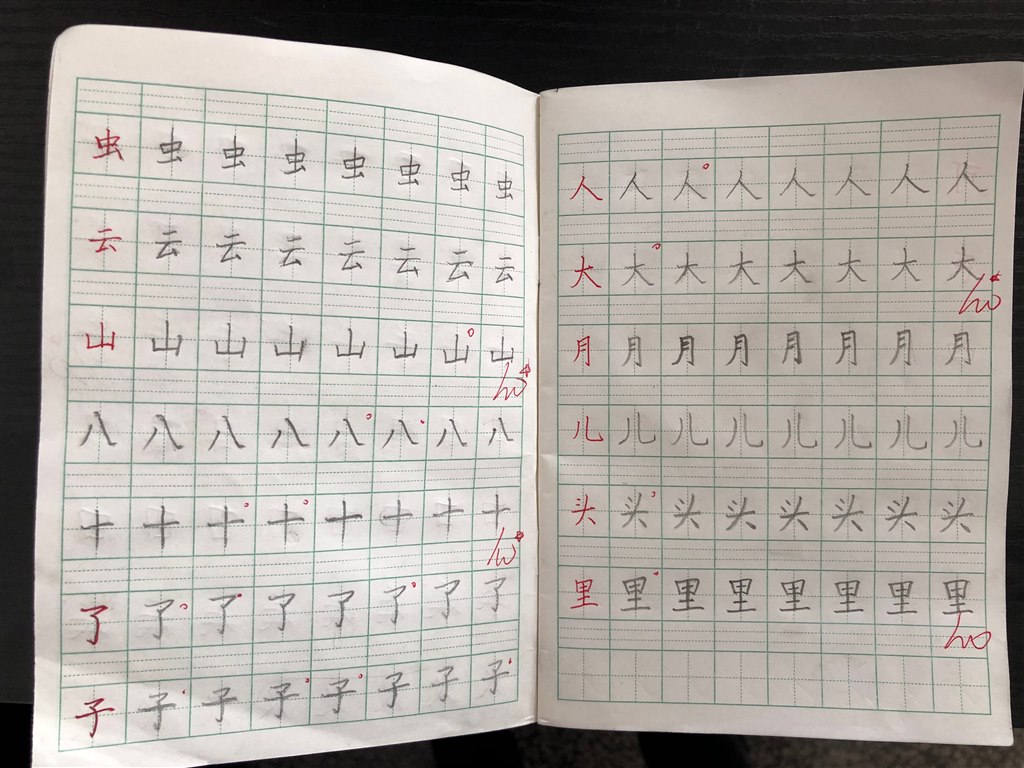 虫 虫 虫 虫 虫 虫 虫 虫
云 云 云 云 云 云 云 云
山 山 山 山 山 山 山 山
八 八 八 八 八 八 八 八
十 十 十 十 十 十 十 十
了 了 了 了 了 了 了 了
子 子 子 子 子 子 子 子
人 人 人 人 人 人 人 人
大 大 大 大 大 大 大 大
月 月 月 月 月 月 月 月
儿 儿 儿 儿 儿 儿 儿 儿
头 头 头 头 头 头 头 头
里 里 里 里 里 里 里 里